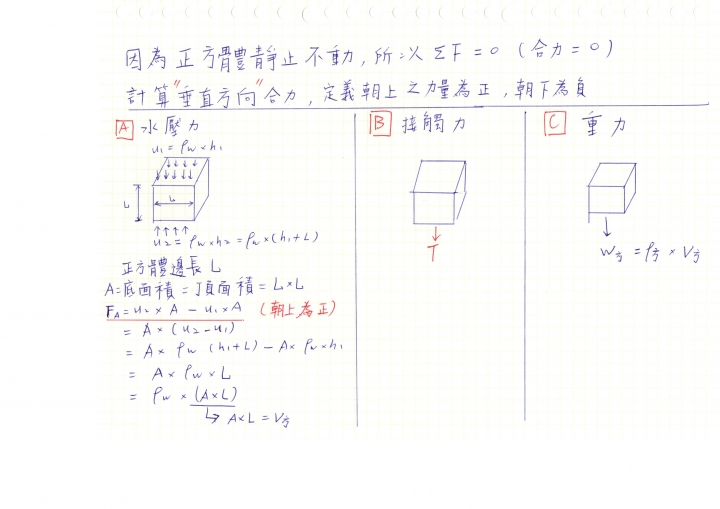 因為正方體靜止不動,所以 ΣF = 0 (合力 = 0)
計算"垂直方向"合力,定義朝上之力量為正,朝下為負
A 水壓力
u₁ = ρw × h₁
L
L
u₂ = ρw × h₂ = ρw × (h₁ + L)
正方體邊長 L
A = 底面積 = 頂面積 = L × L
FA = u₂ × A − u₁ × A (朝上為正)
= A × (u₂ − u₁)
= A × ρw (h₁ + L) − A × ρw × h₁
= A × ρw × L
= ρw × (A × L)
↳ A × L = V方
B 接觸力
T
C 重力
W方 = ρ方 × V方